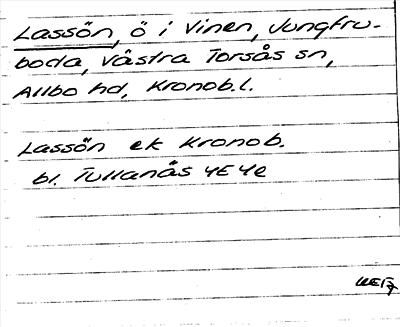 Lassön, ö i Vinen, Jungfru-
boda, Västra Torsås sn,
Allbo hd, Kronob.l.
Lassön ek Kronob.
bl. Tullanås 4E4e